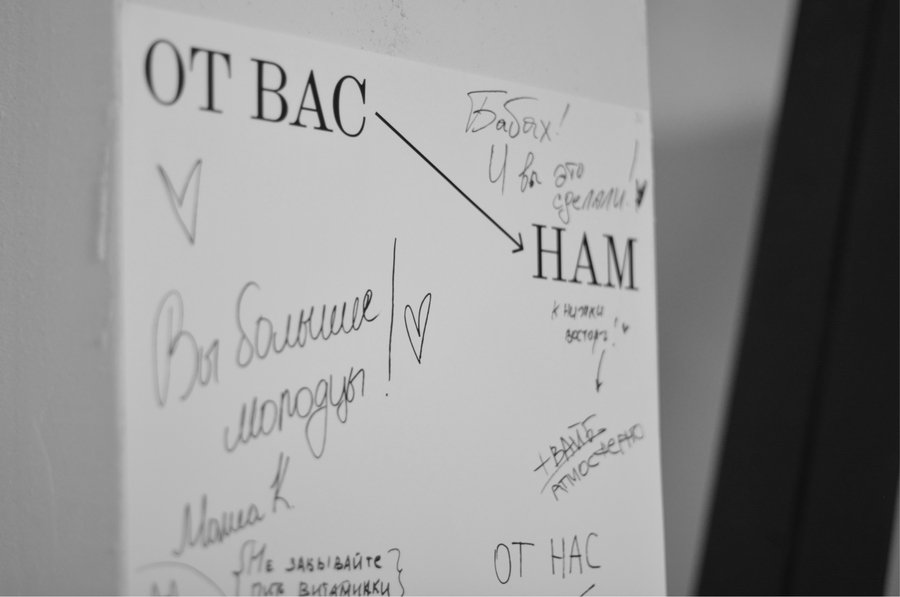 ОТ ВАС
Бабах!
И вы это
сделали!
НАМ
Вы большие
молодцы!
книжки
восторг!
+ВАЙБ
АТМОСФЕРНО
Маша К
Не забывайте
пить витаминки
ОТ НАС